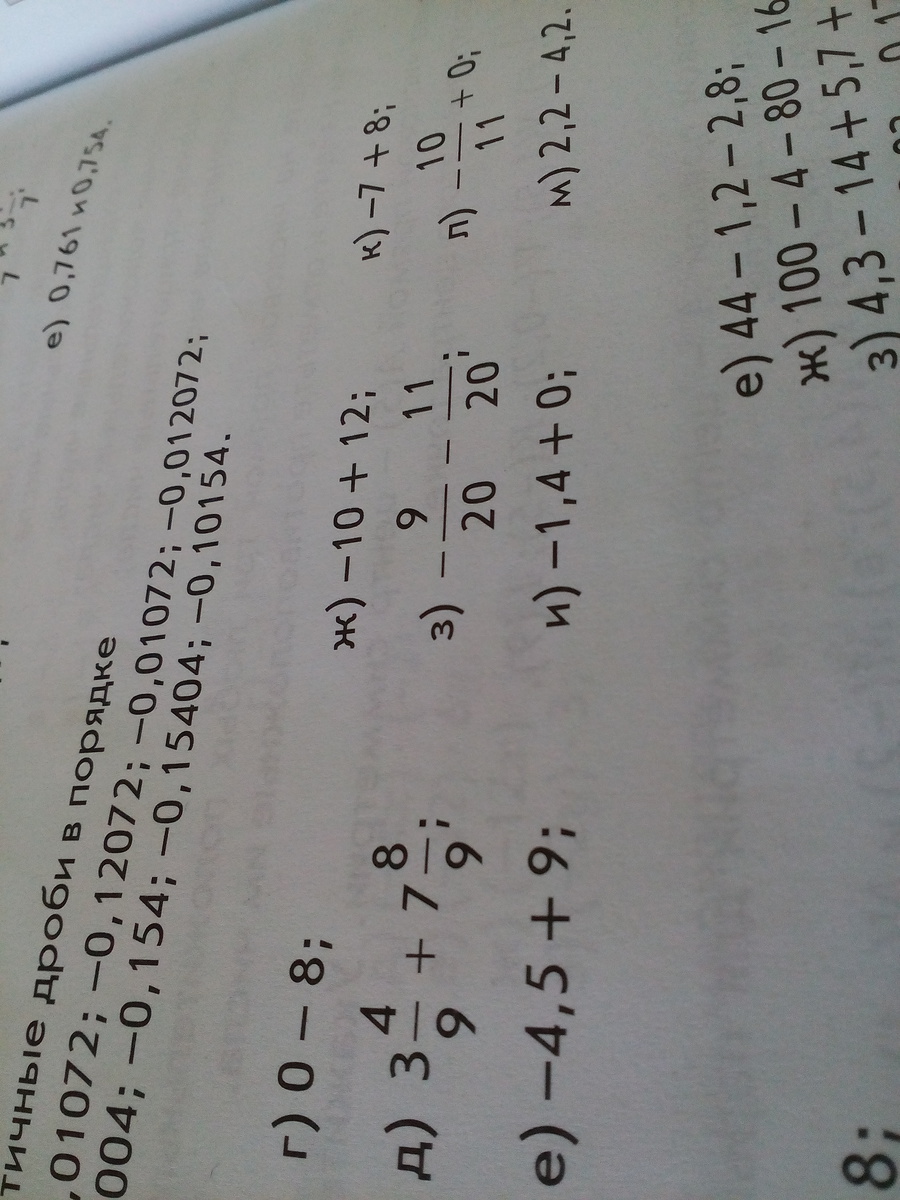 7 и 3 —/7;
е) 0,761 и 0,754.
тичные дроби в порядке
,01072; −0,12072; −0,01072; −0,012072;
004; −0,154; −0,15404; −0,10154.
г) 0 − 8; ж) −10 + 12; к) −7 + 8;
д) 3 4/9 + 7 8/9; з) −9/20 − 11/20; л) −10/11 + 0;
е) −4,5 + 9; и) −1,4 + 0; м) 2,2 − 4,2.
е) 44 − 1,2 − 2,8;
ж) 100 − 4 − 80 − 16
8; з) 4,3 − 14 + 5,7 +